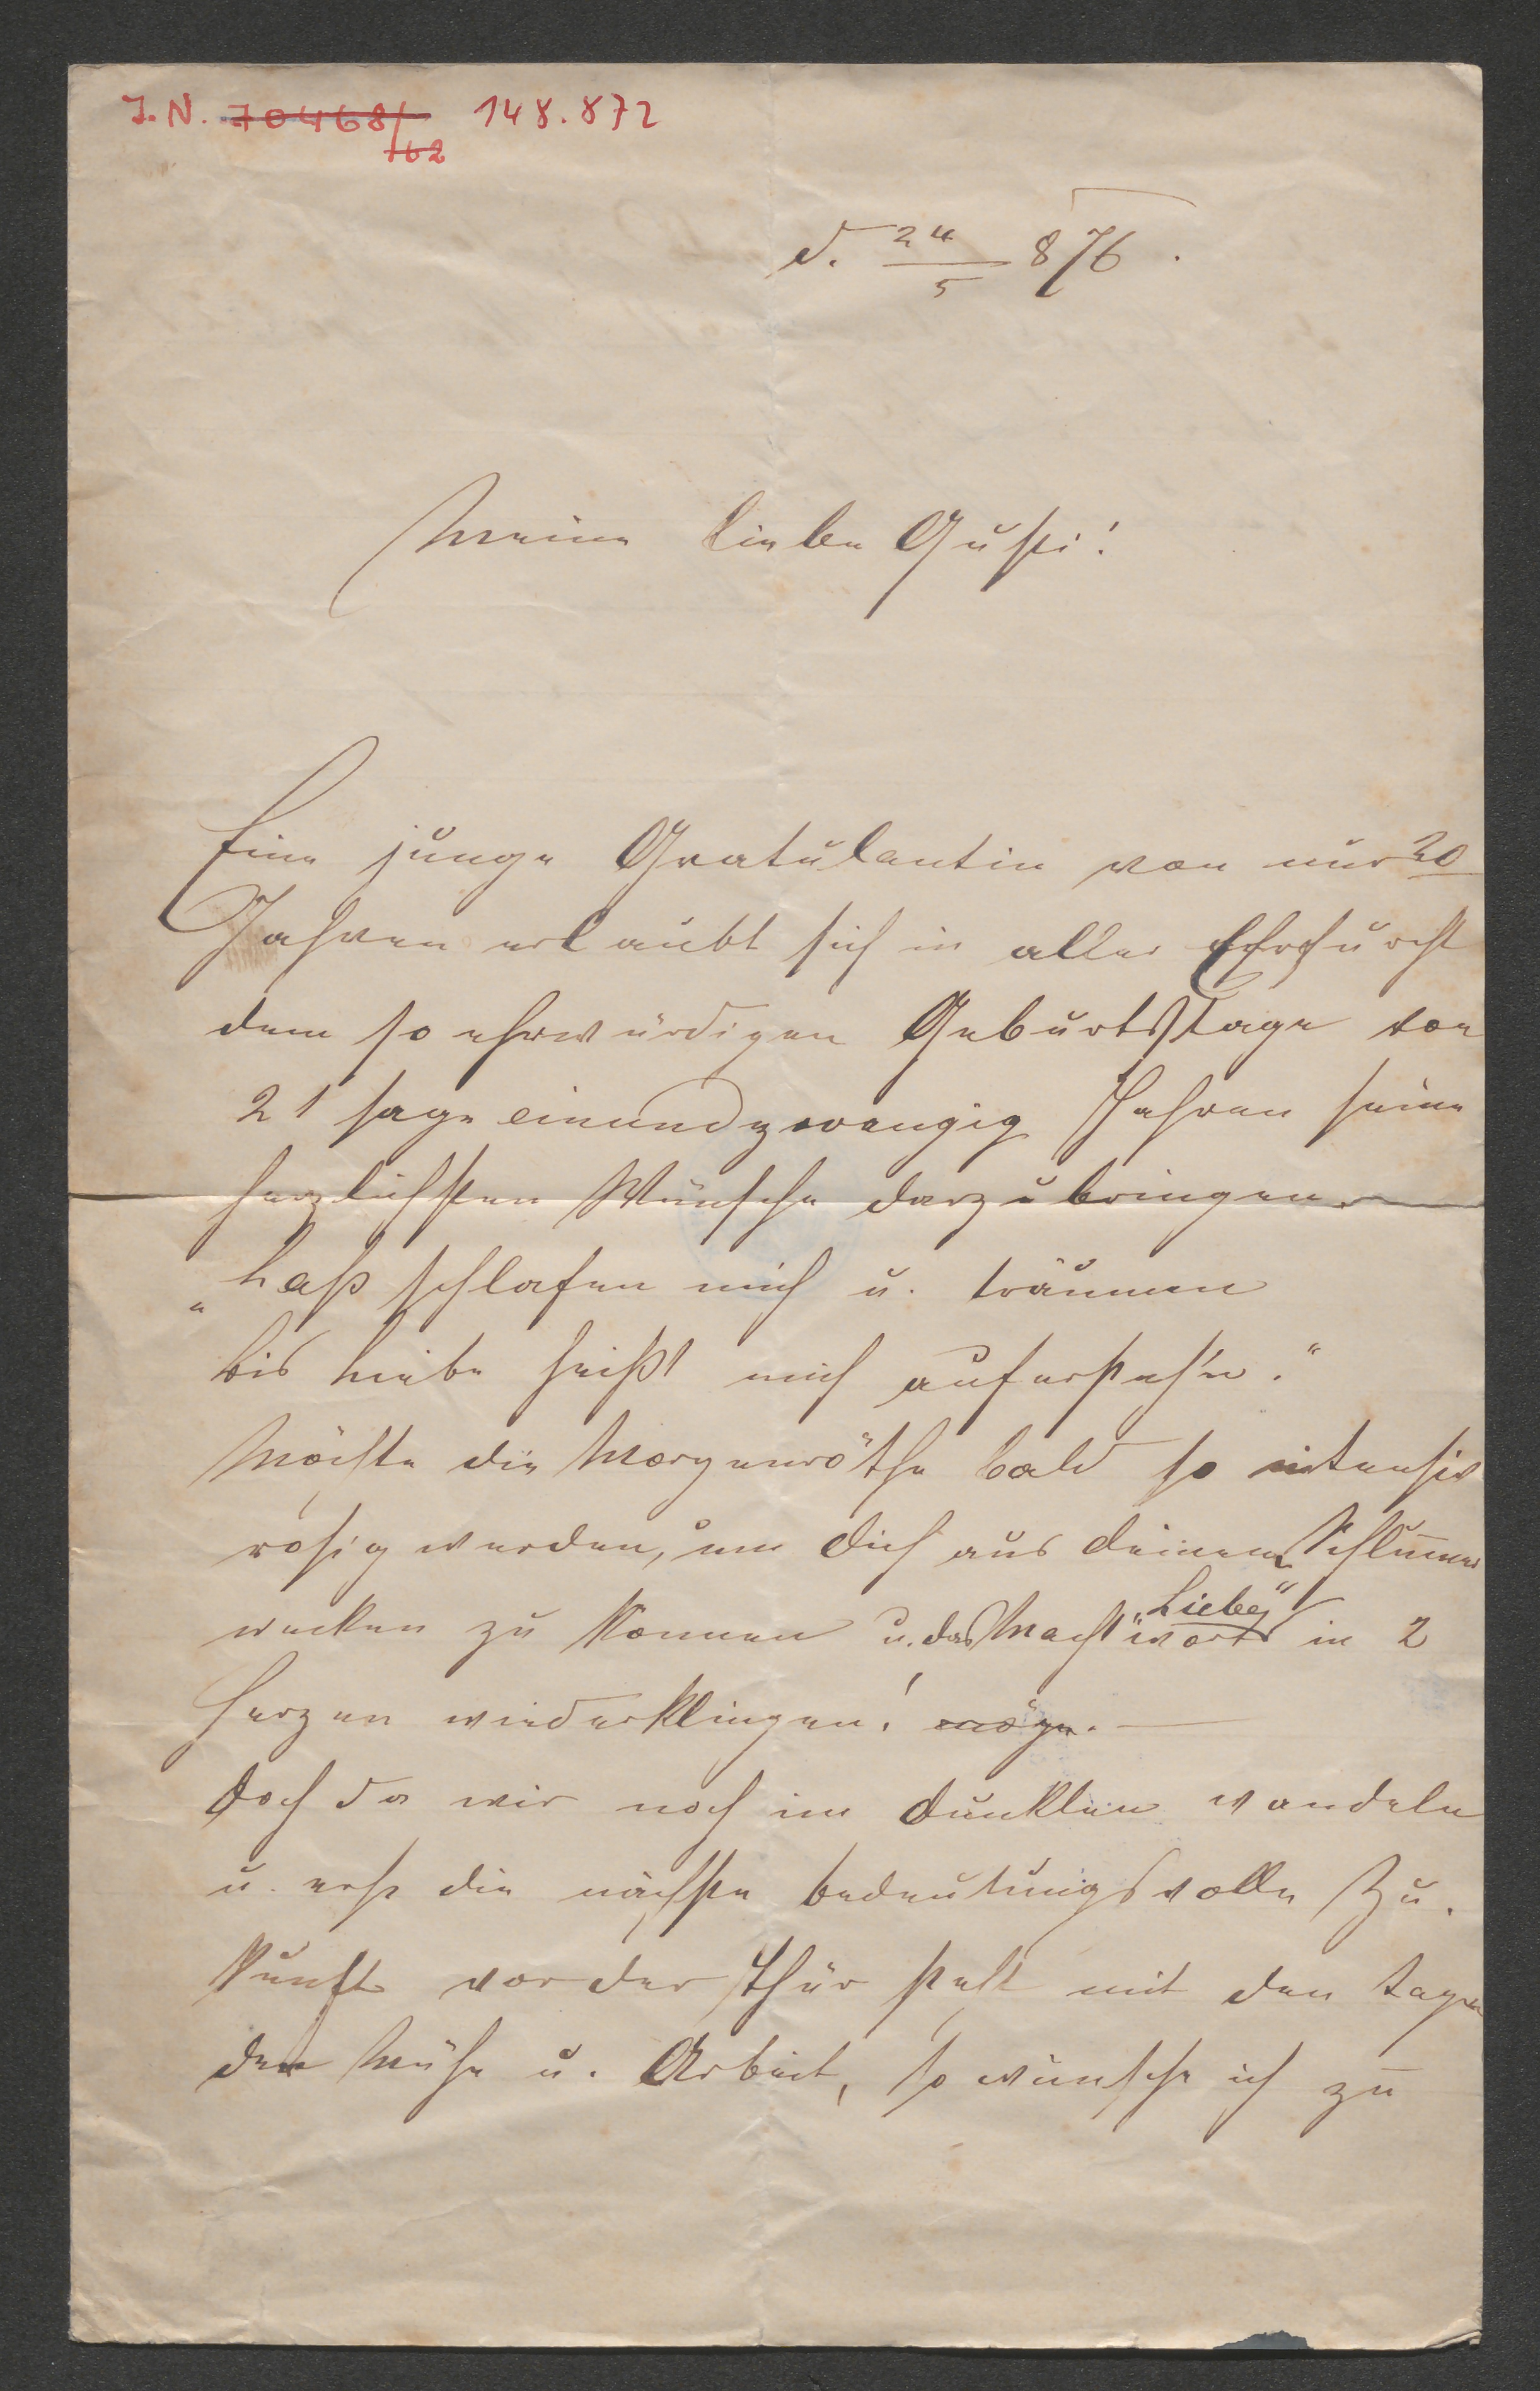 J.N. 70468/ 148.872
762
d. 24/5 876.
Meine liebe Gusti!
Eine junge Gratulantin von nur 20
Jahren erlaubt sich in aller Ehrfurcht
dem so ehrwürdigen Geburtstage von
21 sage einundzwanzig Jahren seine
herzlichsten Wünsche darzubringen.
„Laß schlafen mich u. träumen
bis Liebe heißt mich aufersteh'n."
Möchte die Morgenröthe bald so intensiv
rosig werden, um dich aus deinem Schlummer
wecken zu können u. das Machtwort „Liebe" in 2
Herzen wiederklingen! möge. —
Doch da wir noch im dunklen wandeln
u. erst die nächste bedeutungsvolle Zu-
kunft vor der Thür steht mit den Tagen
der Mühe u. Arbeit, so wünsche ich zu